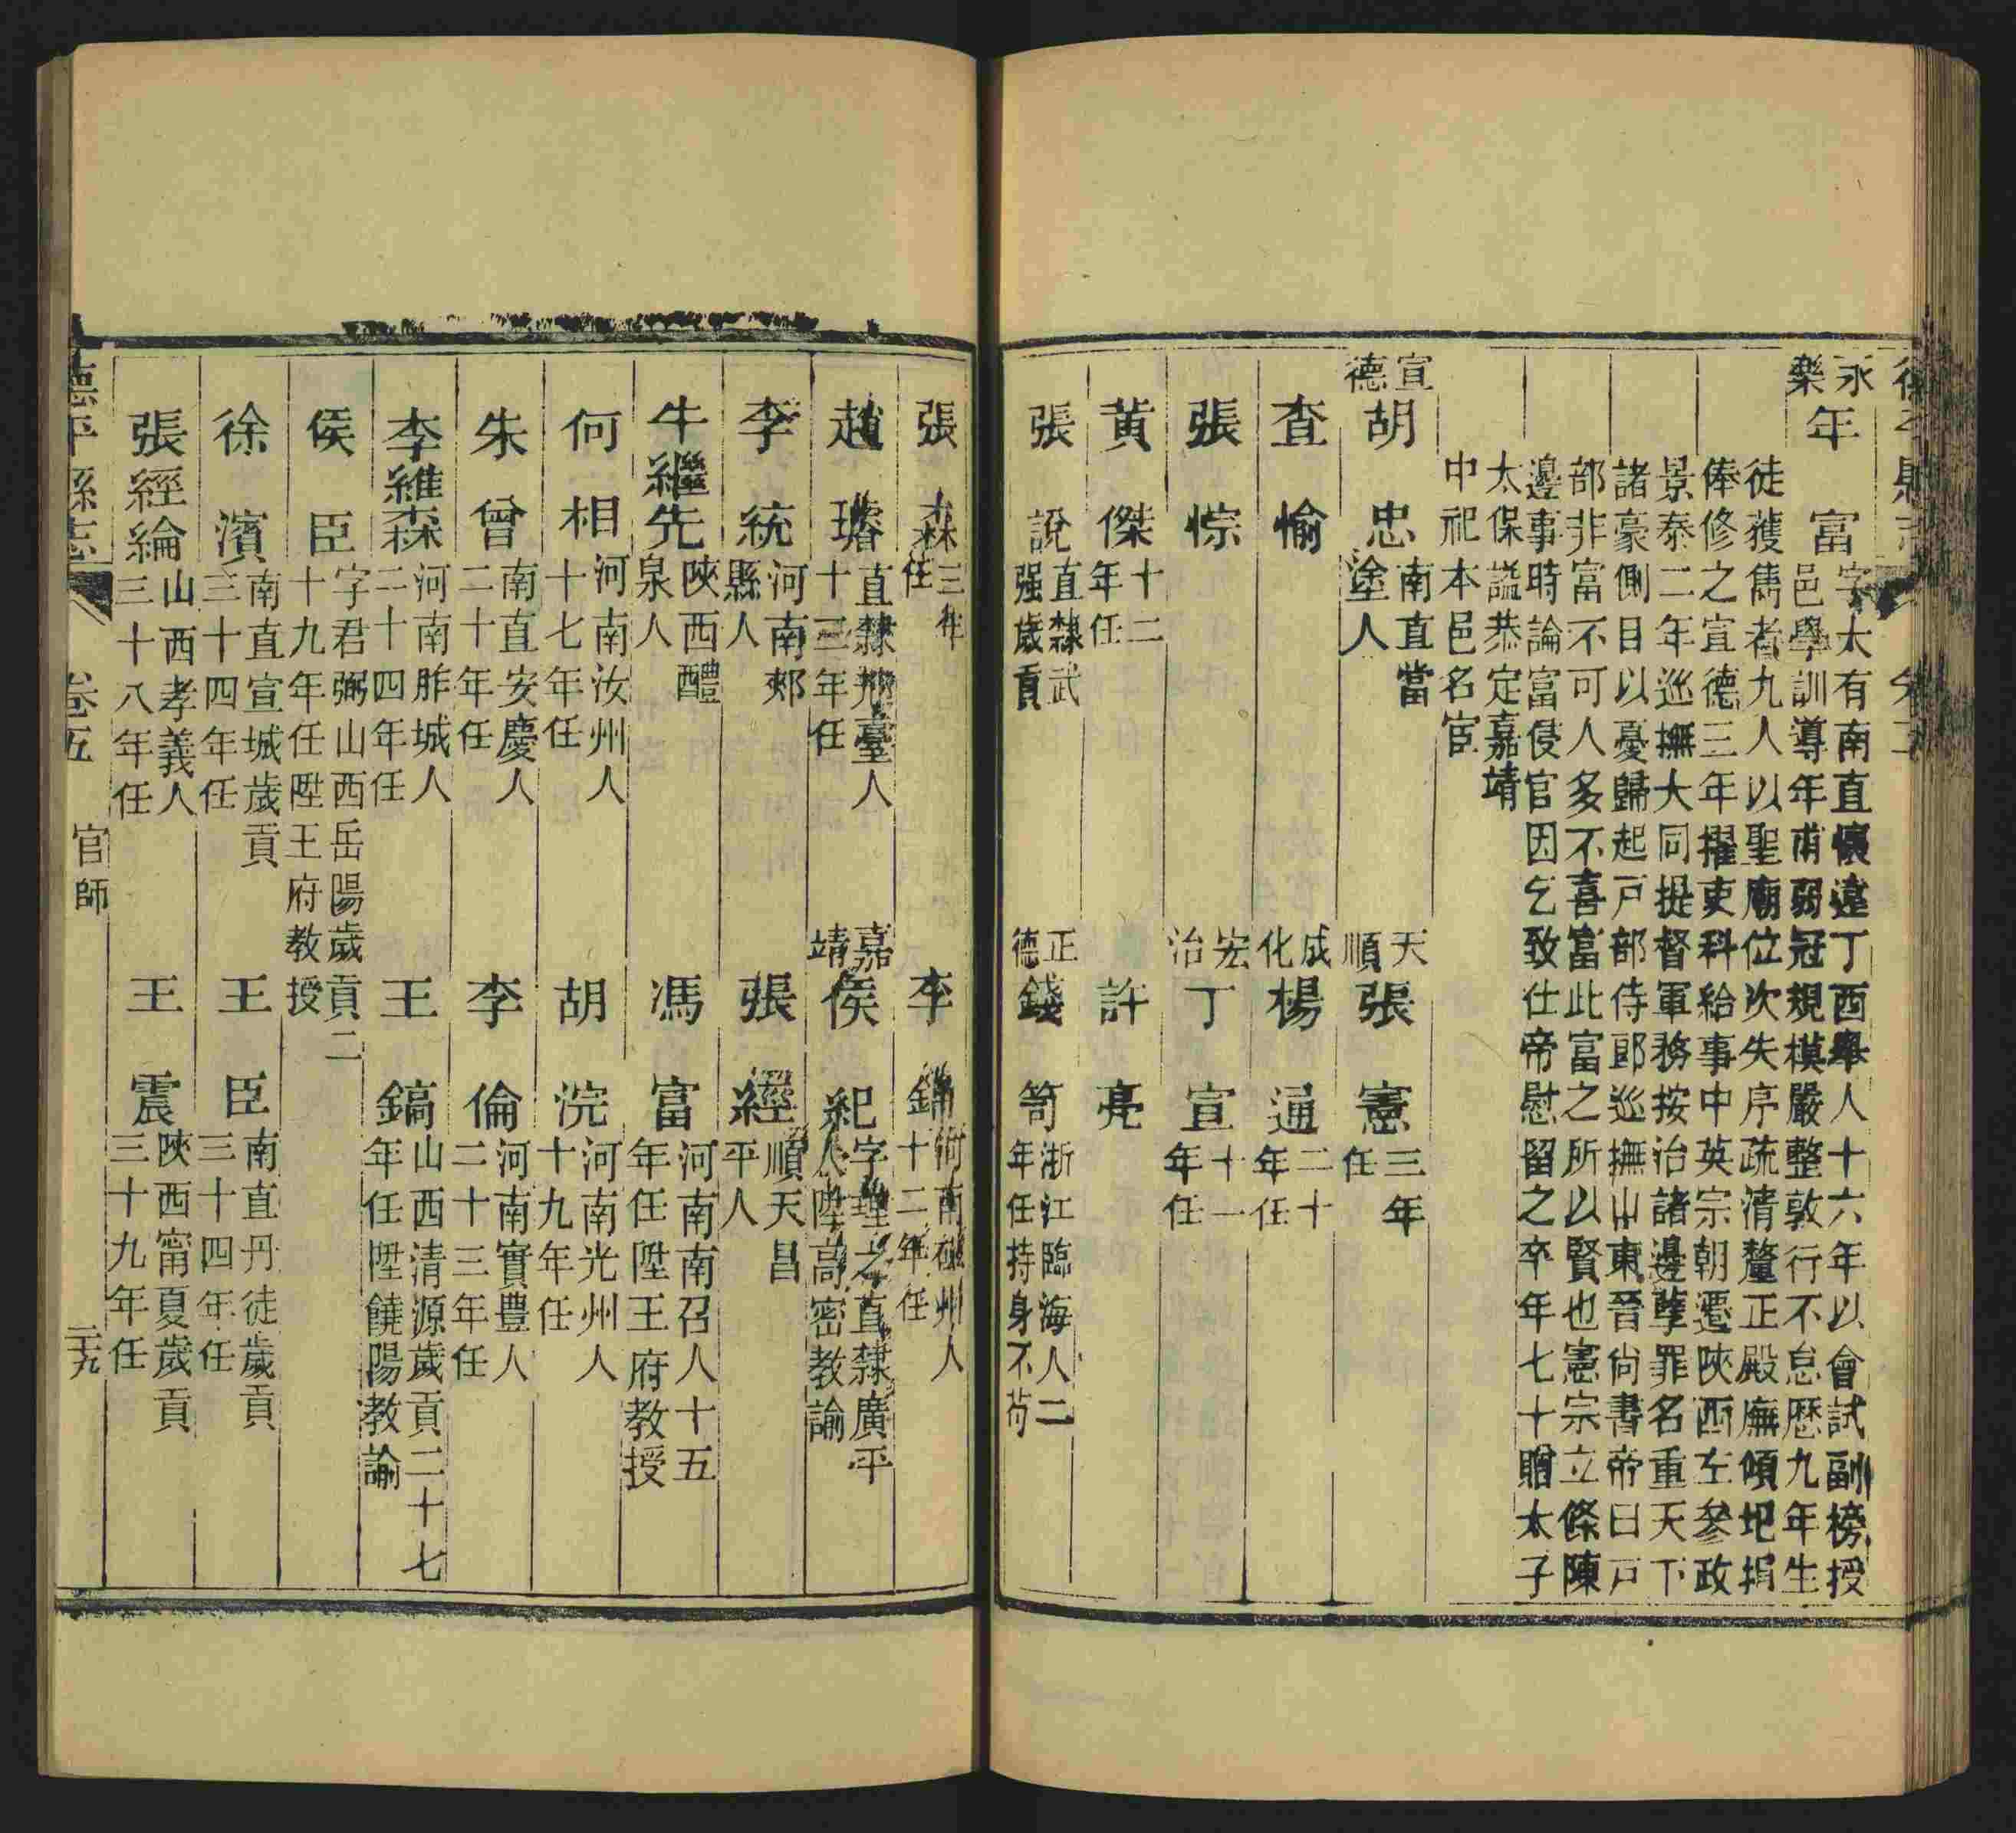 永樂
年富
字大有南直懷遠丁酉舉人十六年以會試副榜授
邑學訓導年甫弱冠規模嚴整敦行不怠歷九年生
徒獲雋者九人以聖廟位次失序疏清釐正殿廡傾圯捐
俸修之宣德三年擢吏科給事中英宗朝遷陝西左參政
景泰二年巡撫大同提督軍務按治諸邊孽罪名重天下
諸豪側目以憂歸起戸部侍郎巡撫山東晉尚書帝曰戸
部非富不可人多不喜富此富之所以賢也憲宗立條陳
邊事時論富侵官因乞致仕帝慰留之卒年七十贈太子
太保謚恭定嘉靖
中祀本邑名宦
宣德
胡忠
南直當
塗人
天順
張憲
三年
任
查愉
成化
楊通
二十
年任
張悰
宏治
丁宣
十一
年任
黃傑
十二
年任
許亮
張說
直隸武
强歲貢
正德
錢笥
浙江臨海人二
年任持身不苟
張森
三年
任
李錦
河南磁州人
十二年任
趙璿
直隸邢臺人
十三年任
嘉靖
侯紀
字理之直隸廣平
人陞高密教諭
李統
河南郟
縣人
張經
順天昌
平人
牛繼先
陝西醴
泉人
馮富
河南南召人十五
年任陞王府教授
何相
河南汝州人
十七年任
胡浣
河南光州人
十九年任
朱曾
南直安慶人
二十年任
李倫
河南寶豊人
二十三年任
李維森
河南胙城人
二十四年任
王鎬
山西清源歲貢二十七
年任陞饒陽教諭
侯臣
字君弼山西岳陽歲貢二
十九年任陞王府教授
徐濱
南直宣城歲貢
三十四年任
王臣
南直丹徒歲貢
三十四年任
張經綸
山西孝義人
三十八年任
王震
陝西甯夏歲貢
三十九年任
德平縣志
卷五
官師
二十九